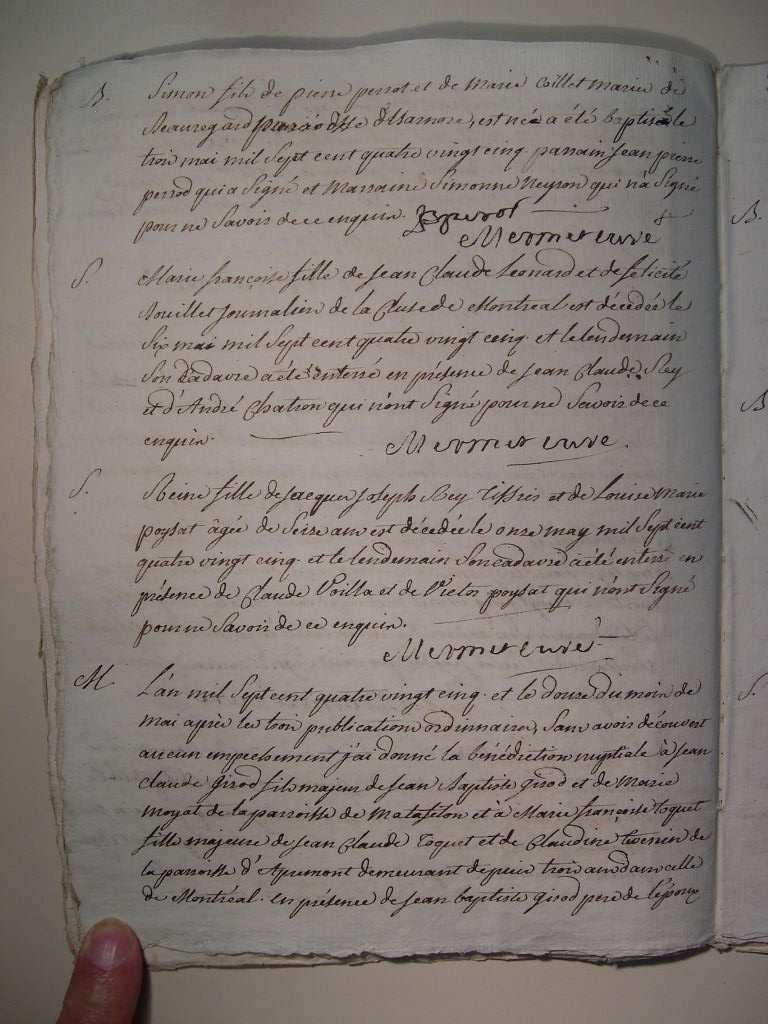 B. Simon fils de pierre perrot et de Marie Collet mariés de
Beauregard paroisse d'Isarnore, est née a été baptisé le
trois mai mil sept cent quatre vingt cinq. parrain jean pierre
perrod qui a signé et marraine Simonne Neyron qui n'a signé
pour ne savoir de ce enquis. JpperroT
Mermet curé
S. Marie françoise fille de jean Claude Leonard et de felicité
journalier de la Cluse de Montreal est décédée le
six mai mil sept cent quatre vingt cinq. et le lendemain
son cadavre a été enterré en présence de jean Claude Rey
et d'André Chatron qui n'ont signé pour ne savoir de ce
enquis.
Mermet curé.
S. Reine fille de jacques joseph Rey Tissier et de Louise Marie
poysat âgée de seize ans est décédée le onze may mil sept cent
quatre vingt cinq. et le lendemain son cadavre a été enterré en
présence de Claude Voilla et de Victor poysat qui n'ont signé
pour ne savoir de ce enquis.
Mermet curé
M L'an mil sept cent quatre vingt cinq. et le douze du mois de
mai après les trois publications ordinnaires, sans avoir découvert
aucun empechement j'ai donné la bénédiction nuptiale à jean
claude girod fils majeur de jean Baptiste girod et de Marie
moyat de la parroisse de matafelon et à Marie françoise Toquet
fille majeure de jean Claude Toquet et de Claudine de
la parroisse d'Apremont demeurant depuis trois ans dans celle
de Montréal. en présence de jean baptiste girod pere de l'époux
B.
B
S.